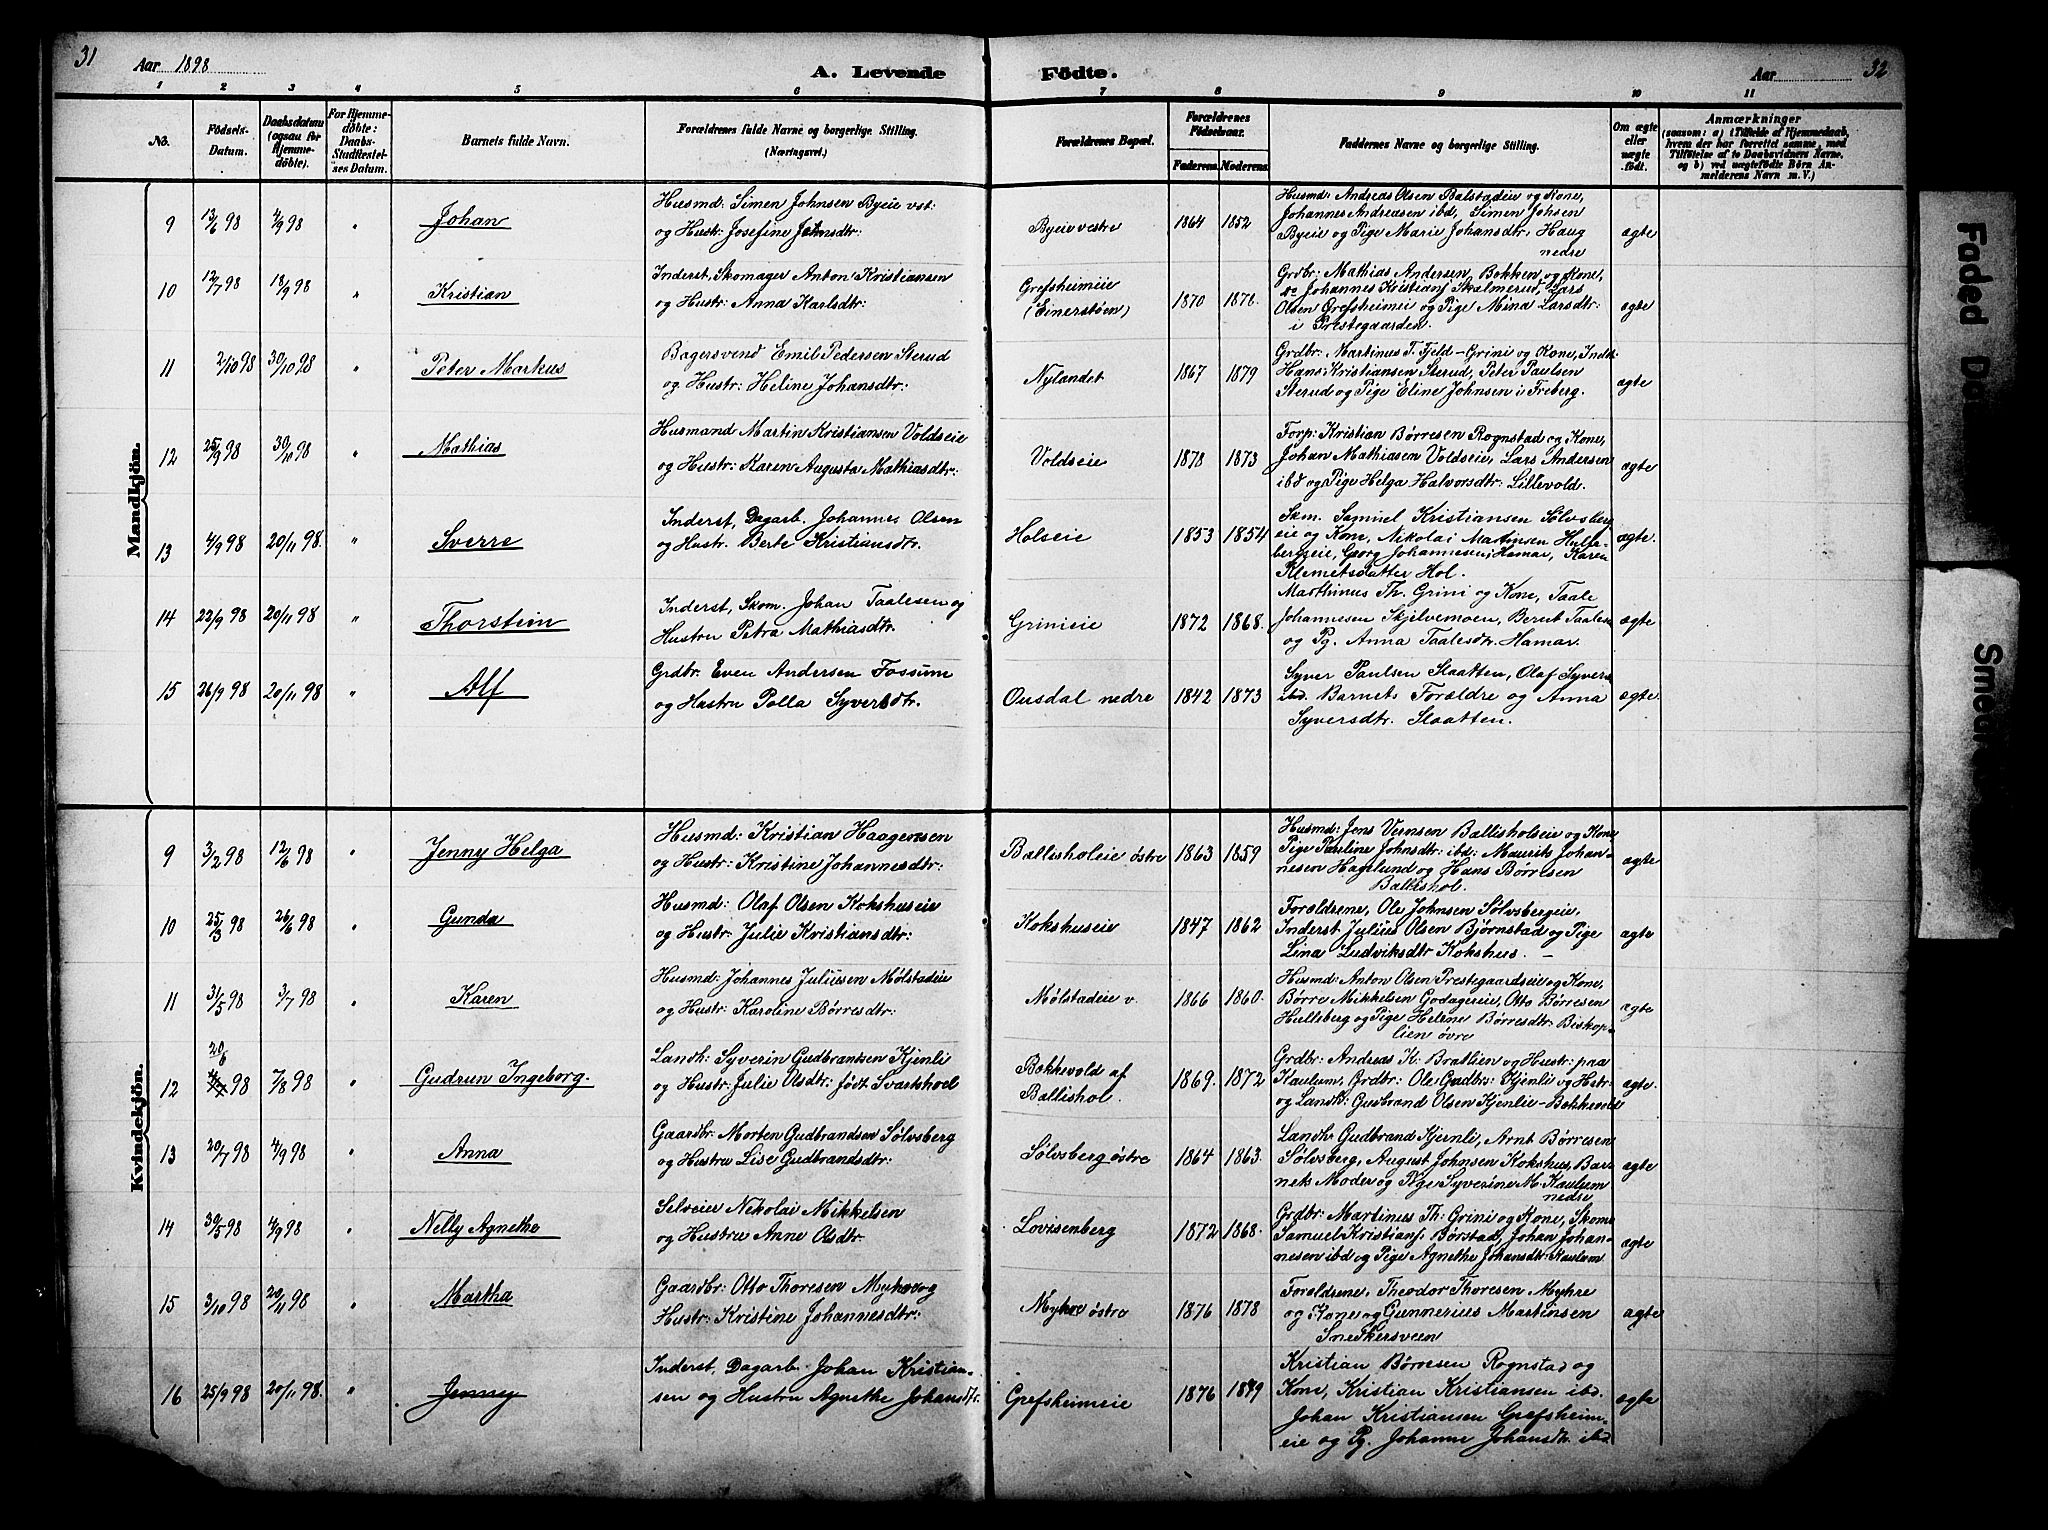 31
Aar 1898
A. Levende Födte.
Aar
32
1 2 3 4 5 6 7 8 9 10 11
No.
Födsels-Datum.
Daabsdatum (ogsaa for Hjemmedöbte).
For Hjemmedöbte: Daabs-Stadfæstelses Datum.
Barnets fulde Navn.
Forældrenes fulde Navne og borgerlige Stilling. (Næringsvei.)
Forældrenes Bopæl.
Forældrenes Födselsaar.
Faderens. Moderens.
Faddernes Navne og borgerlige Stilling.
Om ægte eller uægte födt.
Anmærkninger
(saasom: a) i Tilfælde af Hjemmedaab, hvem der har forrettet samme, med Tilföielse af to Daabsvidners Navne, og b) ved uægtefödte Börn Anmelderens Navn m. V.)
Mandkjön.
9 13/6 98 4/9 98 " Johan
Husmd: Simen Johnsen Byeie vst:
og Hustr: Josefine Johnsdtr:
Byeie vestre 1864 1852
Husmd: Andreas Olsen Balstadeie og Kone,
Johannes Andreasen ibd, Simen Johsen
Byeie og Pige Marie Johansdtr, Haug
nedre
ægte
10 12/7 98 18/9 98 " Kristian
Inderst, Skomager Anton Kristiansen
og Hustr: Anna Karlsdtr:
Grefsheimeie
(Einerstøen)
1870 1872.
Grdbr: Mathias Andersen, Bokken, og Kone,
do Johannes Kristians Skalmerud, Lars
Olsen Grefsheimeie og Pige Mina Larsdtr:
i Prestegaarden.
ægte
11 2/10 98 30/10 98 " Peter Markus
Bagersvend Emil Pedersen Sterud
og Hustr: Heline Johansdtr:
Nylandet 1867 1879
Grdbr: Martinus T. Fjeld-Grini og Kone, Inds:
Hans Kristiansen Sterud, Peter Paulsen
Sterud og Pige Eline Johnsen i Freberg.
ægte
12 25/9 98 30/10 98 " Mathias
Husmand Martin Kristiansen Voldseie
og Hustr: Karen Augusta Mathiasdtr:
Voldseie 1878 1873
Forp: Kristian Børresen Rognstad og Kone,
Johan Mathiasen Voldseie, Lars Andersen
ibd og Pige Helga Halvorsdtr: Lillevold.
ægte
13 4/9 98 20/11 98. " Sverre
Inderst, Dagarb. Johannes Olsen
og Hustr. Berte Kristiansdtr.
Holseie 1853 1854
Skm. Samuel Kristiansen Sølvsberg
eie og Kone, Nikolai Martinsen Hulle-
bergeie, Georg Johannesen, Hamar, Karen
Klemetsdatter Hol.
ægte.
14 22/9 98 20/11 98 " Thorstein
Inderst, Skom. Johan Taalesen og
Hustru Petra Mathiasdtr.
Grinieie 1872 1868.
Marthinus Th. Grini og Kone, Taale
Johannesen Skjelvemoen, Bernt Taalesen
og Pg. Anna Taalesdtr. Hamar.
ægte
15 26/9 98 20/11 98 " Alf
Grdbr. Even Andersen Fossum
og Hustru Polla Syversdtr.
Ousdal nedre 1842 1873
Syver Paulsen Slaatten, Olaf Syvers
ibd. Barnets Foraldre og Anna
Syversdtr. Slaatten.
ægte.
Kvindekjön.
9 3/2 98 12/6 98 " Jenny Helga
Husmd: Kristian Haagensen
og Hustr: Kristine Johannesdtr:
Ballisholeie østre 1863 1859
Husmd: Jens Vernsen Ballisholeie og Kone,
Pige Pauline Johnsdtr: ibd: Maurits Johan-
nesen Hagelund og Hans Børresen
Ballishol.
ægte
10 25/3 98 26/6 98 " Gunda
Husmd: Olaf Olsen Kokshuseie
og Hustr: Julie Kristiansdtr:
Kokshuseie 1847 1862
Foraldrene, Ole Johnsen Sølvsbergeie,
Inderst Julius Olsen Bjørnstad og Pige
Lina Ludviksdtr Kokshus. —
ægte
11 31/5 98 3/7 98 " Karen
Husmd: Johannes Juliusen Mølstadeie
og Hustr: Karoline Børresdtr:
Mølstadeie v. 1866 1860.
Husmd: Anton Olsen Prestegaardseie og Kone,
Børre Mikkelsen Godagereie, Otto Børresen
Hulleberg og Pige Helene Børresdtr: Biskop-
lien øvre
ægte
12 20/6 98 7/8 98 " Gudrun Ingeborg.
Landh: Syverin Gudbrantsen Kjenli
og Hustr: Julie Olsdtr: født Svartshoel
Bekkevold af
Ballishol.
1869. 1872
Grdbr: Andreas K. Bratlien og Hustr: paa
Kaulum, Grdbr: Ole Gudbrs: Kjenli og Hstr:
og Landh: Gudbrand Olsen Kjenlie-Bekkevold
ægte.
13 20/7 98 4/9 98 " Anna
Gaardbr: Morten Gudbrandsen Sølvsberg
og Hustru Lise Gudbrandsdtr:
Sølvsberg østre 1864 1863.
Landhr Gudbrand Kjenli, Arnt Børresen
Sølvsberg, August Johnsen Kokshus, Bar-
nets Moder og Pige Syverine M. Kaulum
nedre
ægte
14 30/5 98 4/9 98 " Nelly Agnethe
Selveier Nikolai Mikkelsen
og Hustru Anne Olsdtr.
Lovisenberg 1872 1868.
Grdbr: Martinus Th: Grini og Kone, Skom:
Samuel Kristians Børstad, Johan Johan-
nesen ibd og Pige Agnethe Johansdtr: Kaulum
ægte
15 3/10 98 20/11 98 " Martha
Gaardbr: Otto Thoresen Myhre og
Hustr: Kristine Johannesdtr:
Myhre østre 1876 1878
Foraldrene, Theodor Thoresen Myhre
og Kone og Gunnerius Martinsen
Snekkersveen
ægte
16 25/9 98 20/11 98. " Jenny
Inderst, Dagarb. Johan Kristian-
sen og Hustru Agnethe Johansdtr.
Grefsheimeie 1876 1879
Kristian Børresen Rognstad og
Kone, Kristian Kristiansen ibd.
Johan Kristiansen Grefsheim-
eie og Pg. Johanne Johansdtr. ibd
ægte
Faded